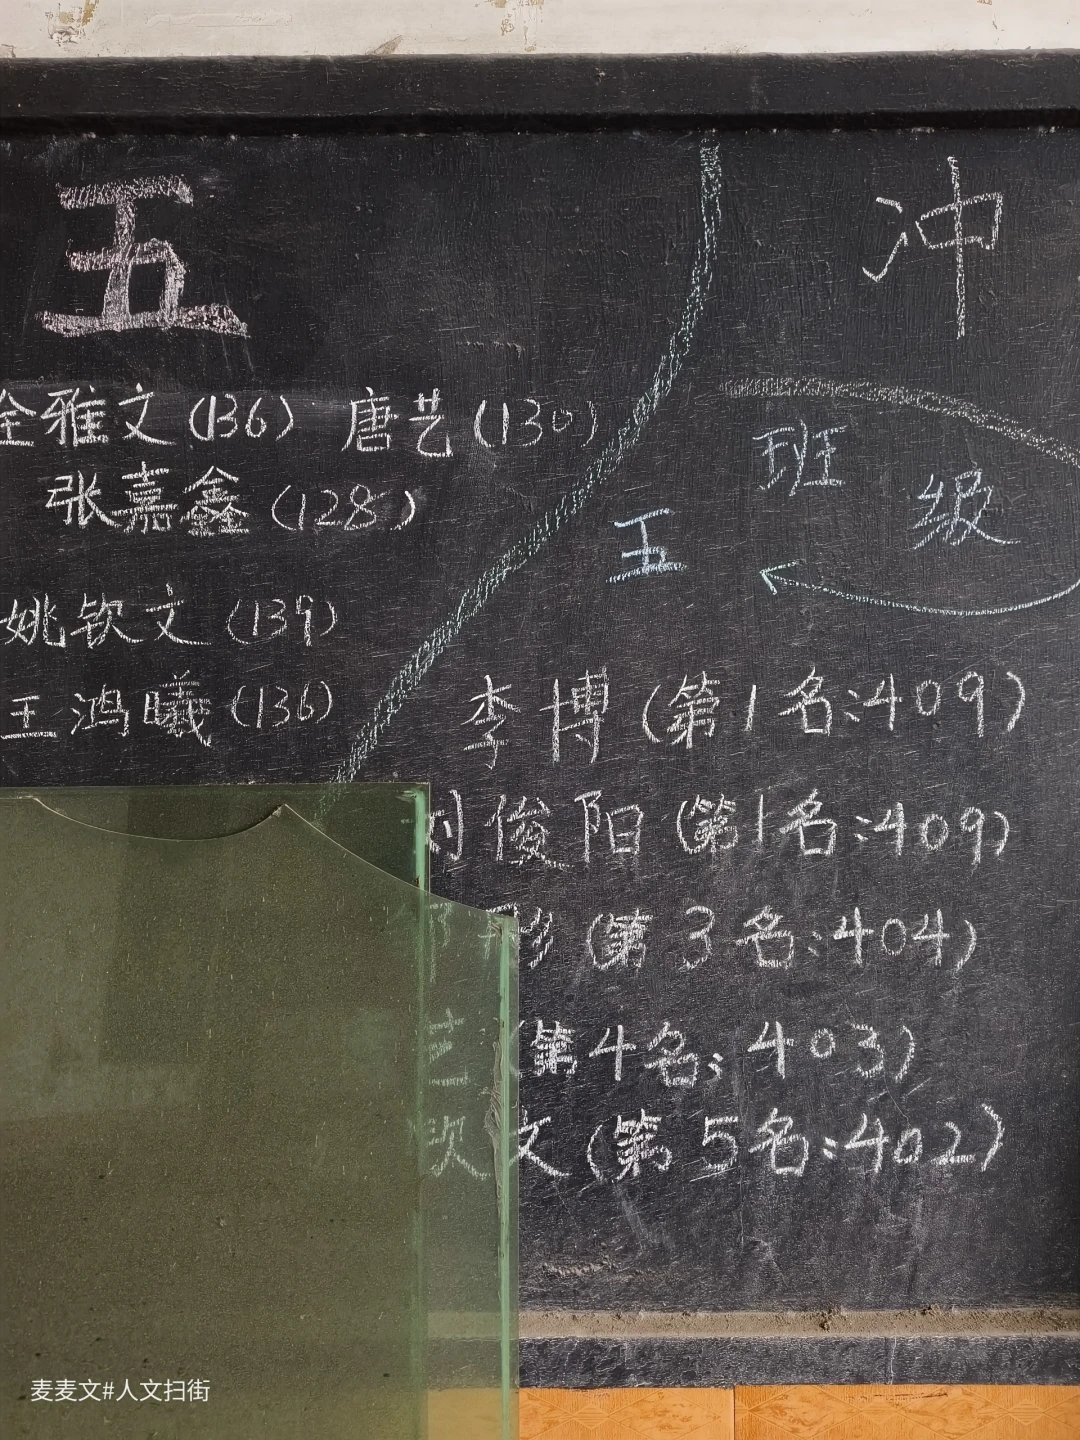 五
全雅文(136) 唐艺(130)
张嘉鑫(128)
姚钦文(139)
王鸿曦(136)
冲
班级
五
李博(第1名:409)
刘俊阳(第1名:409)
彤(第3名:404)
艺(第4名:403)
钦文(第5名:402)
麦麦文#人文扫街